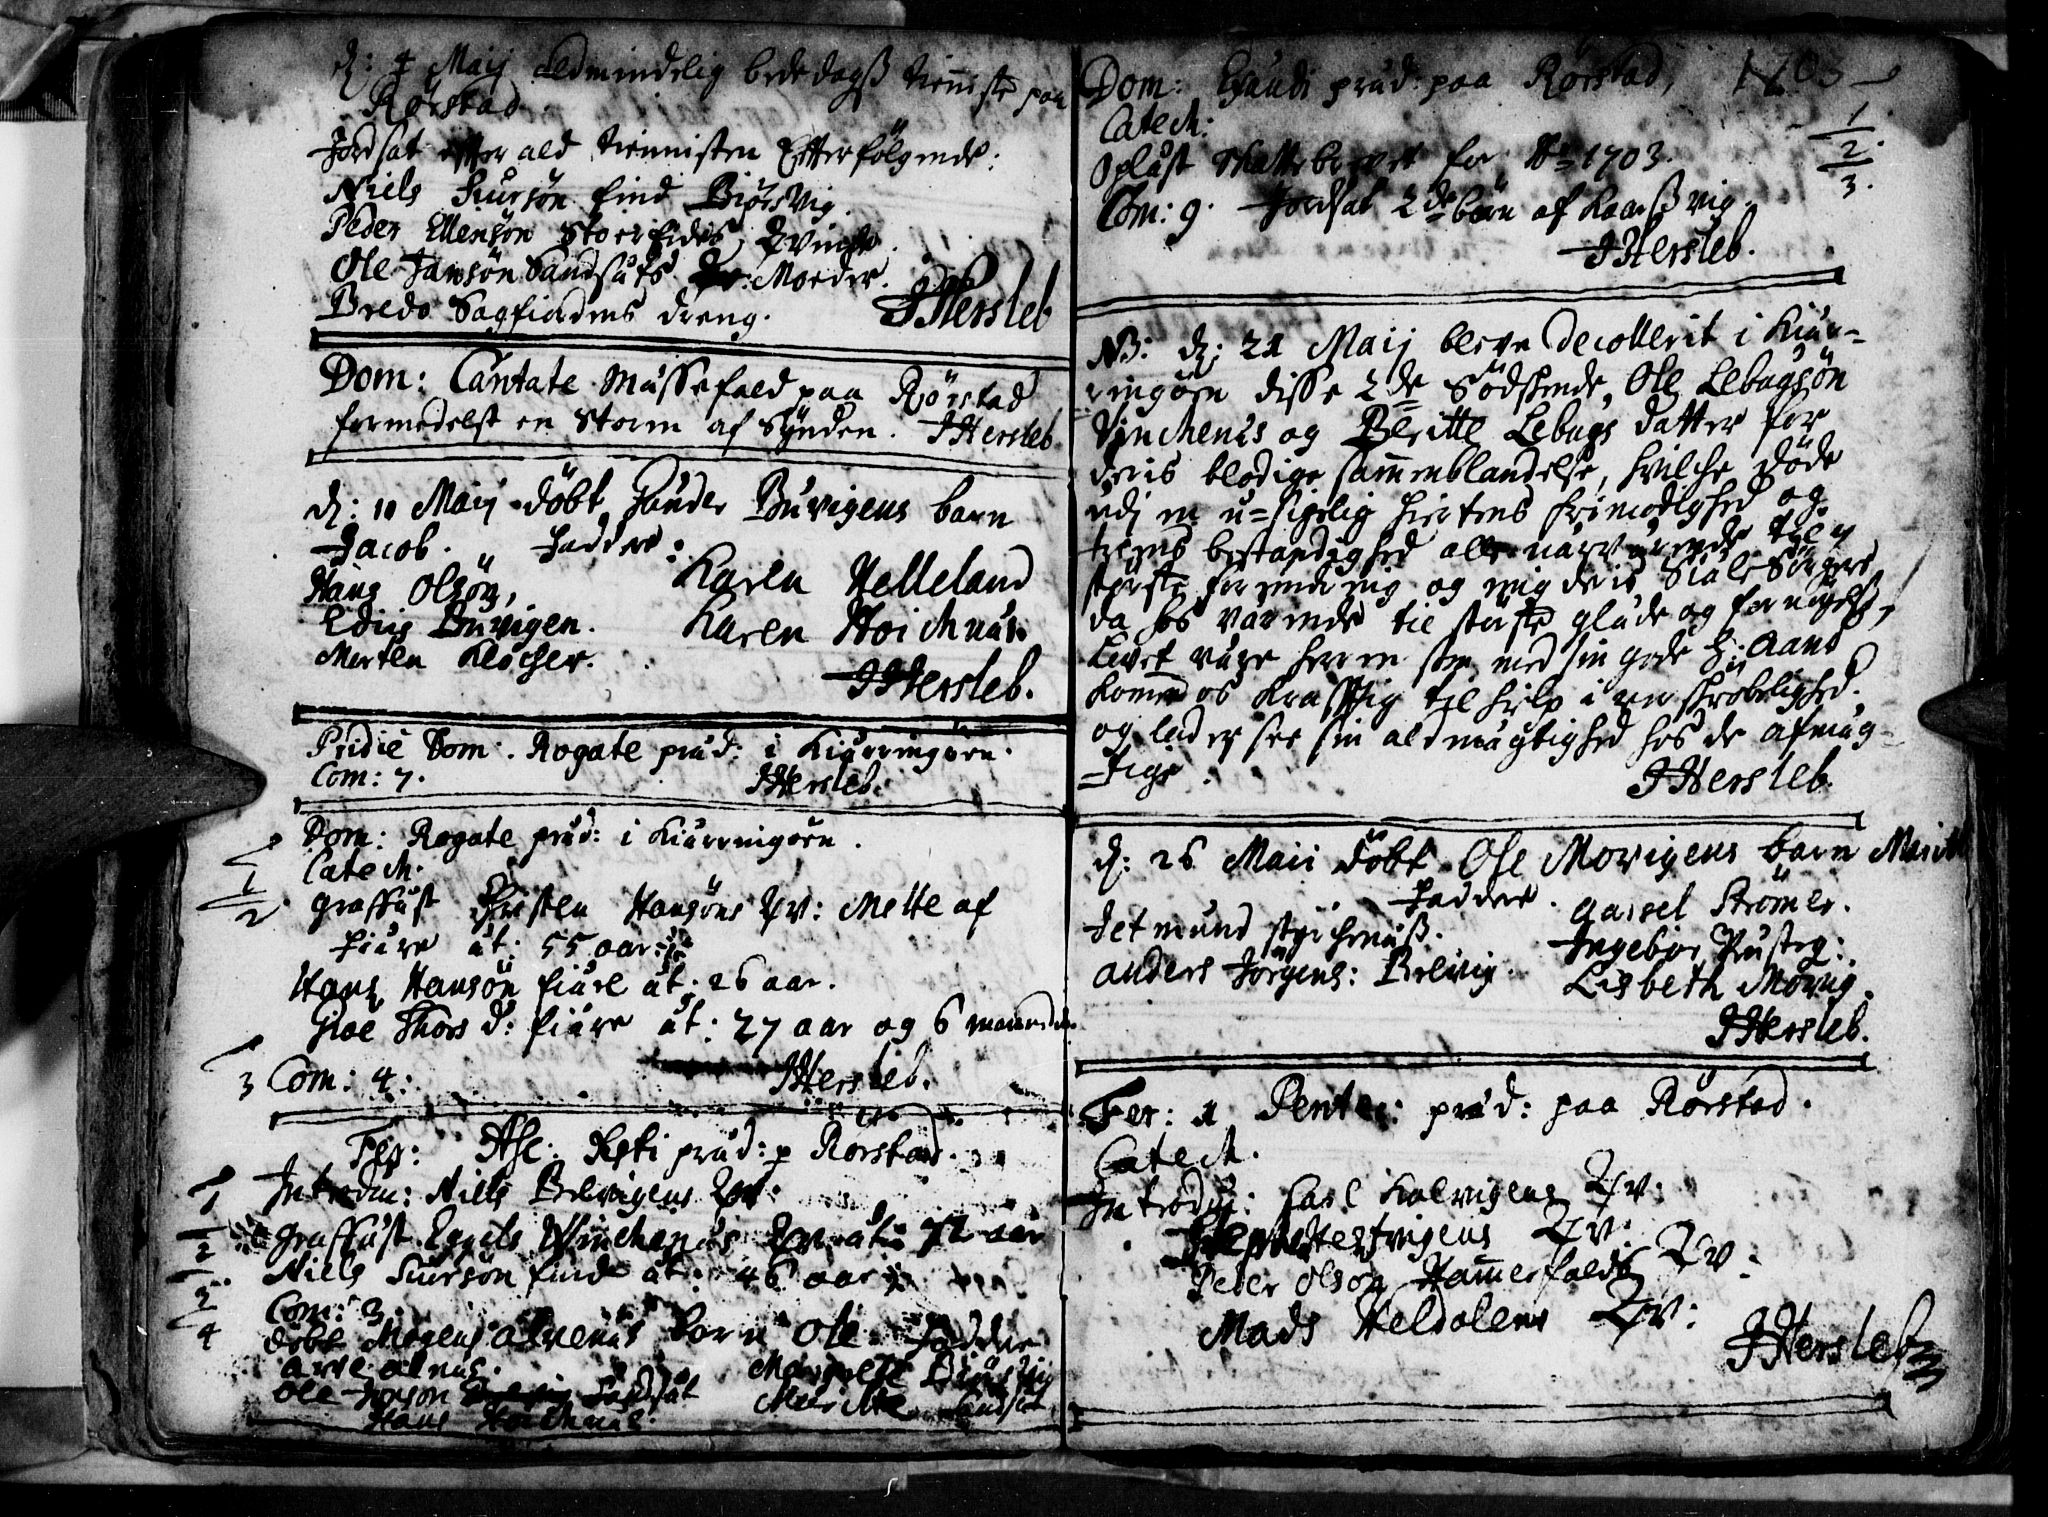 d: 4 Maij Aldmindelig bededagß tienniste paa
Rörstad
Jordsat efter ald tiennisten Efterfölgende:
Niels Siursön find Biörsvig.
Peder Ellensön Storfiords Qvinde.
Ole Jansön Sandsæts Moeder.
Bredo Sagfiordens dreng.
JHersleb
Dom: Cantate Messefald paa Rörstad
formedelst en Storm af Synden. JHersleb
d: 11 Maij döbt Peder Buvigens barn
Jacob. Faddere:
Hans Olsön, Karen Helleland
Ediis Buvigen. Karen Hoichnæs.
Morten Klocher.
JHersleb.
Pridie Dom: Rogate præd: i Kierringöen.
Com: 7. JHersleb.
Dom: Rogate præd: i Kierringöen.
Catech.
1
2
Graffæst Christen Hansöns Qv: Mette af
Fiære æt: 55 aar
Hans Hansön Fiære æt: 26 aar.
Thors d: Fiære æt: 27 aar og 6 maaneder.
3 Com: 4: JHersleb.
Fer: Asc: Xsti præd: p Rörstad.
1 Introduc: Niels Belvigens Qv:
2 Graffæst Engels Vinchenæs Qv: æt: 72 aar
Niels Siursön find æt: 46 aar
3 Com: 3.
4 döbt Mogens Alnenæs barn Ole. Faddere
Arne Alnæs. Margrete Biörsvig
Ole Jonson Sandsæt Merritte Sandset
Hans Hoichnæs.
Dom: Exaudi præd: paa Rörstad, 1703
Catech: 1
Oplæst Skattebrevet for Ao 1703. 2.
Com: 9. Jordsat 2de börn af Kaarßvig. 3.
JHersleb.
NB: d: 21 Maij bleve decollerit i Kier-
ringöen disse 2de Södskende, Ole Lebagsön
Vinchenes og Beritte Lebags datter for
deris blodige sammenblandelse, hvilche döde
udj en u-sigelig hiertens frimodighed og
troens bestandighed alle nærværende til
störste forundring og mig deris Siæle Sörgere
da hos værende til störste glæde og fornöyelse,
Lovet være herren som med sin gode H: Aand
kommer os krafftig til hielp i vor skröbelighed.
og lader see sin aldmægtighed hos de afmæg-
tige. JHersleb.
d: 26 Maii döbt Ole Morvigens barn Marit
Faddere. Gaisel Strömer.
Jetmund Styrchnæß. Ingebor Pusteg:
Anders Jörgens: Belvig. Lisbeth Morvig.
JHersleb.
Fer: 1 Pentec: præd: paa Rörstad.
Catech.
Introduc: Carl Kalvigens Qv:
Vestervigens Qv:
Peder Olsön Hamerfalds Qv:
Mads Heldalens Qv:
JHersleb